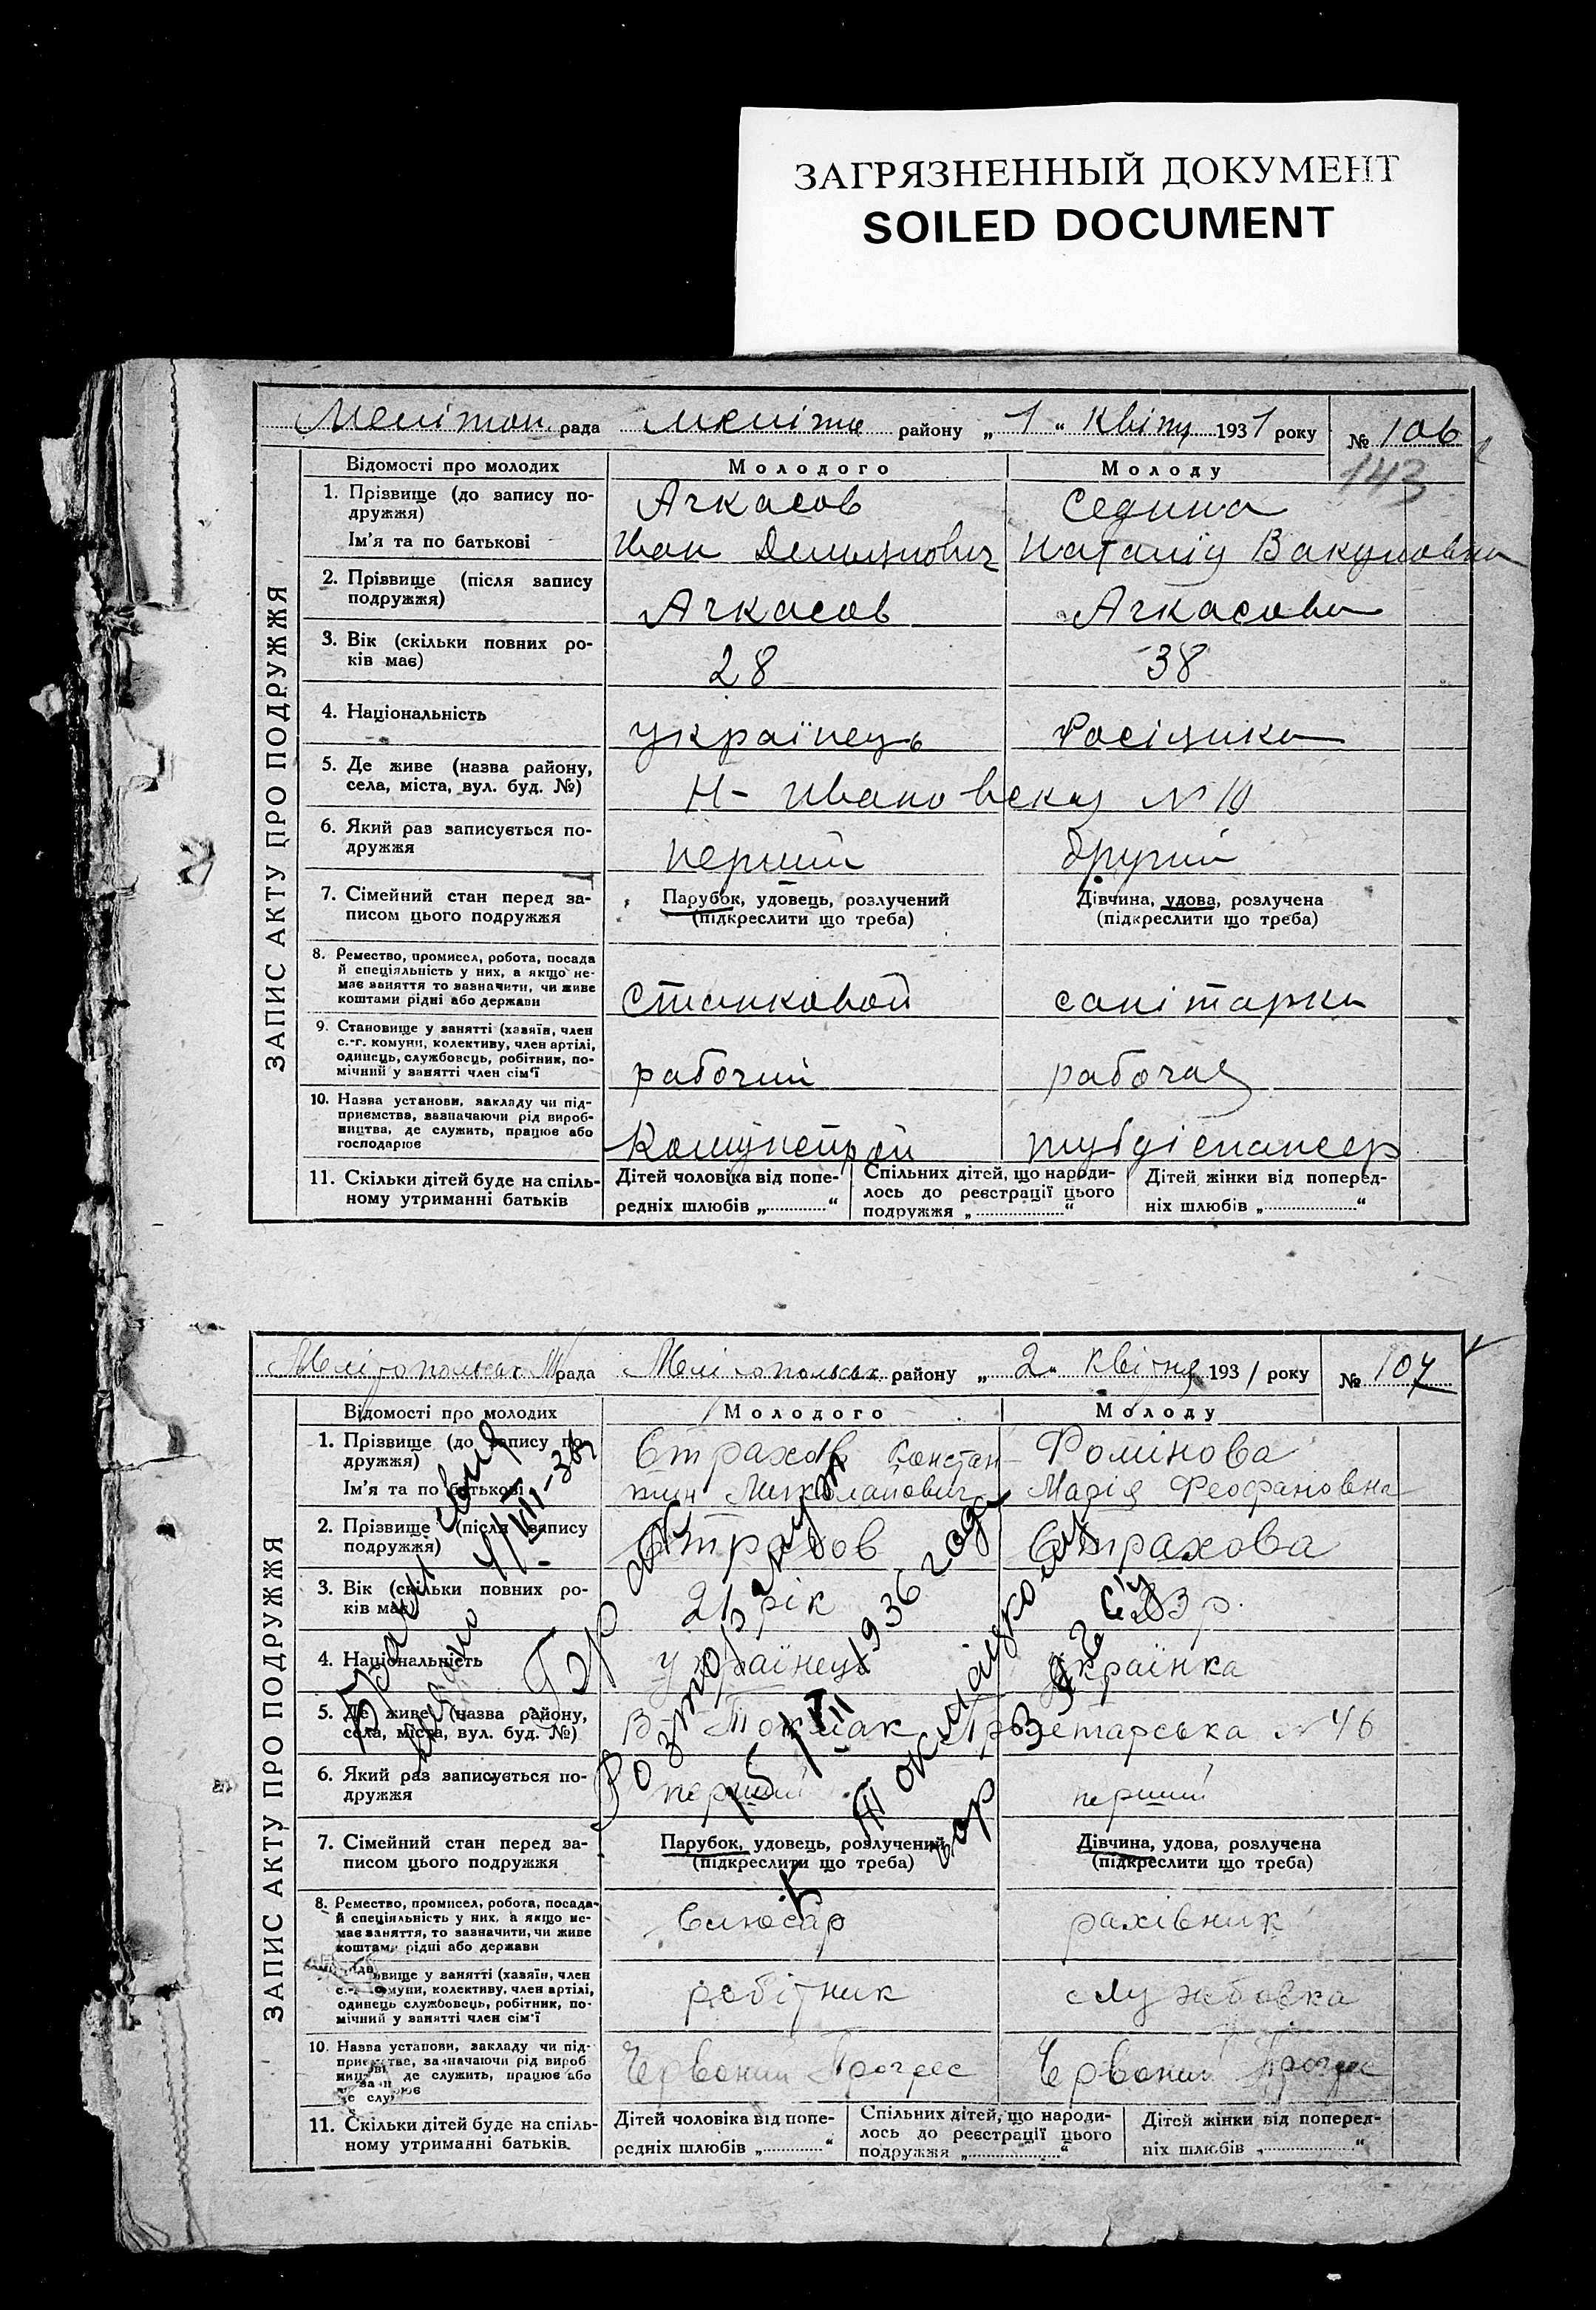 ЗАГРЯЗНЕННЫЙ ДОКУМЕНТ
SOILED DOCUMENT
ЗАПИС АКТУ ПРО ПОДРУЖЖЯ
Мелітоп. рада Меліто району „ 1 “ Квітн 1931 року № 106
143
Відомості про молодих Молодого Молоду
1. Прізвище (до запису по-
дружжя)
Ачкасов Седина
Ім'я та по батькові Иван Демянович Наталія Вакуловна
2. Прізвище (після запису
подружжя)
Ачкасов Ачкасова
3. Вік (скільки повних ро-
ків має)
28 38
4. Національність українець Росіянка
5. Де живе (назва району,
села, міста, вул. буд. №)
Н-Ивановская № 10
6. Який раз записується по-
дружжя
перший другий
7. Сімейний стан перед за-
писом цього подружжя
Парубок, удовець, розлучений
(підкреслити що треба)
Дівчина, удова, розлучена
(підкреслити що треба)
8. Ремество, промисел, робота, посада
й спеціяльність у них, а якщо не-
має заняття то зазначити, чи живе
коштами рідні або держави
Станковой санітарка
9. Становище у занятті (хазяїн, член
с.-г. комуни, колективу, член артілі,
одинець, службовець, робітник, по-
мічний у занятті член сім'ї
рабочий рабочая
10. Назва установи, закладу чи під-
приємства, зазначаючи рід вироб-
ництва, де служить, працює або
господарює
Комунстрой тубдіспансер
11. Скільки дітей буде на спіль-
ному утриманні батьків
Дітей чоловіка від попе-
редніх шлюбів „ “
Спільних дітей, що народи-
лось до реєстрації цього
подружжя „ “
Дітей жінки від поперед-
ніх шлюбів „ “
ЗАПИС АКТУ ПРО ПОДРУЖЖЯ
Мелітопольськ М рада Мелітопольськ району „ 2 “ квітня 1931 року № 107
Відомості про молодих Молодого Молоду
1. Прізвище (до запису по-
дружжя)
Ім'я та по батькові
Страхов Констан-
тин Миколайович
Фомінова
Марія Феофановна
2. Прізвище (після запису
подружжя)
Страхов Страхова
3. Вік (скільки повних ро-
ків має)
21 рік 23 р.
4. Національність українець українка
5. Де живе (назва району,
села, міста, вул. буд. №)
В-Токмак Пролетарська № 46
6. Який раз записується по-
дружжя
перший перший
7. Сімейний стан перед за-
писом цього подружжя
Парубок, удовець, розлучений
(підкреслити що треба)
Дівчина, удова, розлучена
(підкреслити що треба)
8. Ремество, промисел, робота, посада
й спеціяльність у них, а якщо не-
має заняття, то зазначити, чи живе
коштами рідні або держави
Слюсар рахівник
вище у занятті (хазяїн, член
с.-г. комуни, колективу, член артілі,
одинець службовець, робітник, по-
мічний у занятті член сім'ї
робітник службовка
10. Назва установи, закладу чи під-
приємства, зазначаючи рід вироб
де служить, працює або
Червоний Прогрес Червоний Прогрес
11. Скільки дітей буде на спіль-
ному утриманні батьків.
Дітей чоловіка від попе-
редніх шлюбів „ “
Спільних дітей, що народи-
лось до реєстрації цього
подружжя „ “
Дітей жінки від поперед-
ніх шлюбів „ “
4/VIII-36
Розторгнут
15/VII 1936 года
В Токмацком
ЗАГС